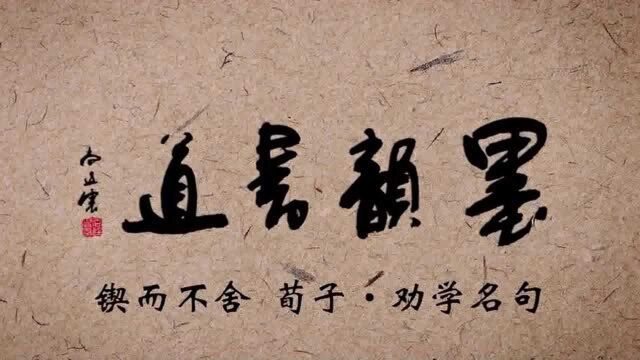 墨韻書道
锲而不舍 荀子·劝学名句